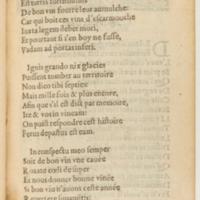 De bon vin fourre leur aumulche:
Car qui boit ces vins d'escarmouche
Iuxta legem debet mori,
Et pourtant si i'en boy ne fusse,
Vadam ad portas inferi.
Ignis grando nix glacies
Puissent tomber au territoire
Non dico tibi septies
Mais mille fois & plus encore,
Afin que s'il est dist par memoire,
Ite & vot in vineam:
On puist respondre cest histoire
Ferus depastus est eam.
In conspectu meo semper
Soit de bon vin vne cauée
Rorate cœli de super
Et nous donner bonne vinée
Si bon vin n'auons ceste année